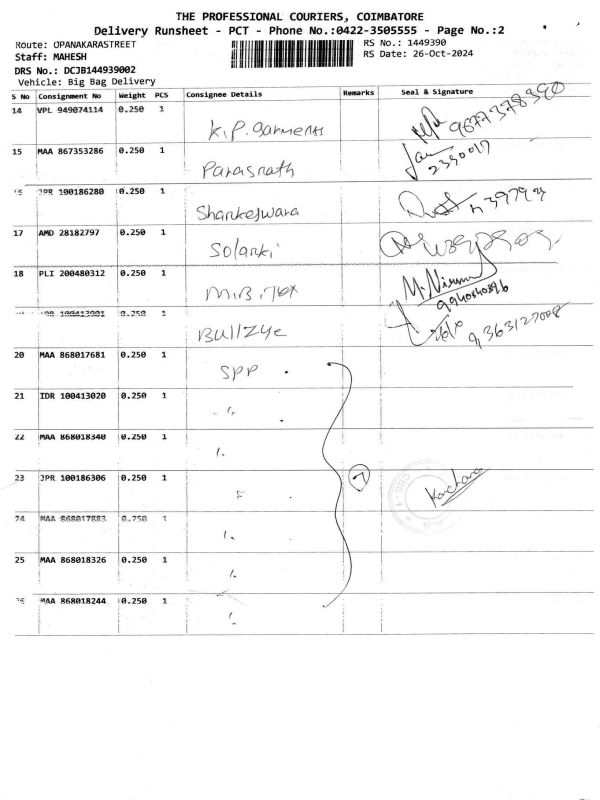 THE PROFESSIONAL COURIERS, COIMBATORE
Delivery Runsheet - PCT - Phone No.:0422-3505555 - Page No.:2
Route: OPANAKARASTREET
RS No.: 1449390
Staff: MAHESH
RS Date: 26-Oct-2024
DRS No.: DCJB144939002
Vehicle: Big Bag Delivery
S No Consignment No Weight PCS Consignee Details Remarks Seal & Signature
14 VPL 949074114 0.250 1 K.P. Garments 9677378390
15 MAA 867353286 0.250 1 Parasnath 2390017
16 JPR 100186280 0.250 1 Shankeswara
17 AMD 28182797 0.250 1 Solanki
18 PLI 200480312 0.250 1 M.B.Tex M.Nirmal
0.250 1 BullZye 9363127008
20 MAA 868017681 0.250 1 SPP
21 IDR 100413020 0.250 1 "
22 MAA 868018340 0.250 1 "
23 JPR 100186306 0.250 1 " 7 Kanchana
24 MAA 868017883 0.250 1 "
25 MAA 868018326 0.250 1 "
26 MAA 868018244 0.250 1 "